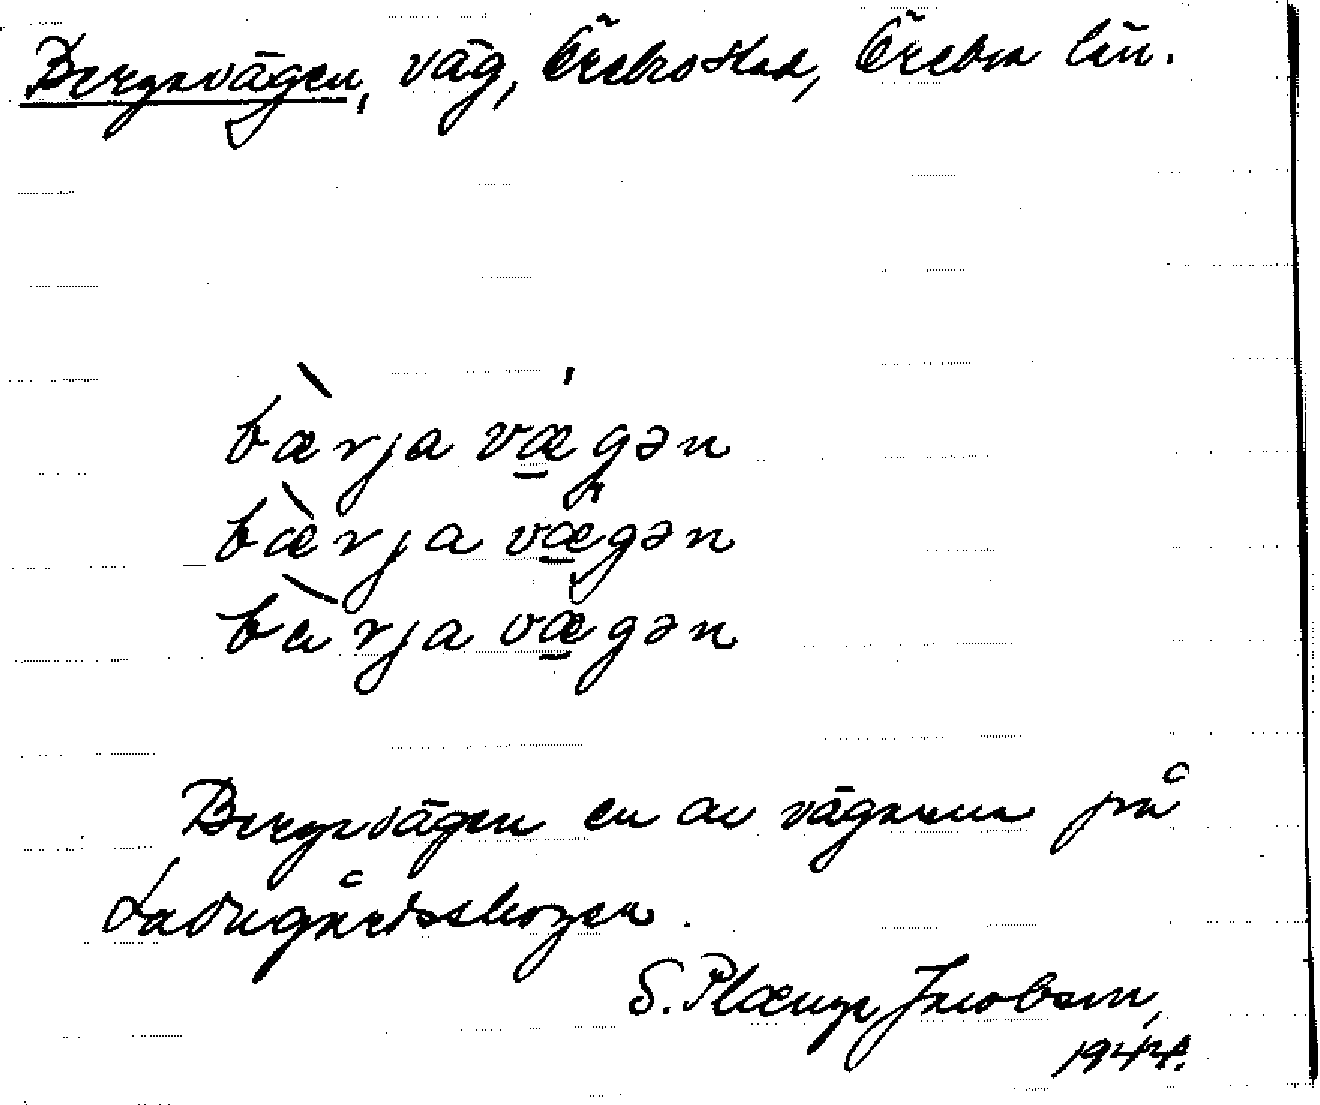 Bergavägen, väg, Örebro stad, Örebro län.
bæ̀rja vǽ̲gən
bæ̀rja væ̲gən
bàrja væ̲gən
Bergavägen en av vägarna på
Ladugårdsskogen.
S. Plænge Jacobson,
1944.